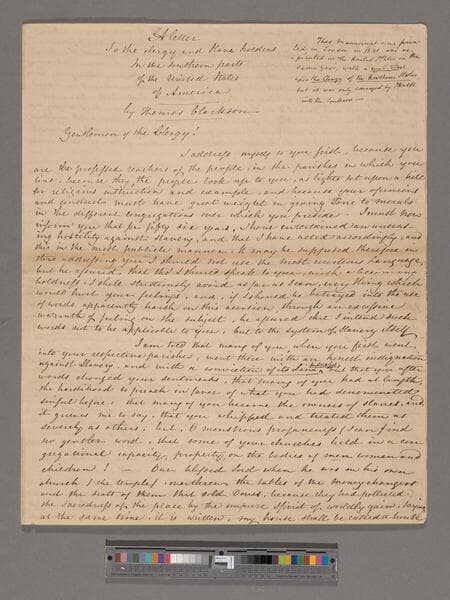 A Letter
To the Clergy and Slave holders
In the Southern parts
of the United States
of America
by Thomas Clarkson.
This Manuscript was prin
ted in London in 1841 was re
printed in the United States in the
same year, with a
upon the Clergy of the Northern States
but it was only conveyed by Stealth
into the Southern
Gentlemen of the Clergy!
I address myself to you first, because you
are the professed teachers of the people, in the parishes in which you
live, because they, the people look up to you, as lights set upon a hill
for religious instruction and example, and because your opinions
and conduct must have great weight in giving Tone to morals
in the different congregations over which you preside. I must now
inform you that for fifty six years, I have entertained an unceas
ing hostility against Slavery, and that I have acted accordingly, and
this in the most public manner. It may be supposed, therefore, in
thus addressing you I should not use the most courteous Language,
but be assured, that tho' I should speak to you with a becoming
boldness, I shall studiously avoid as far as I can, every thing which
would hurt your feelings, and, if I should be betrayed into the use
of words apparently harsh on this occasion, through an excessive
warmth of feeling on the subject, be assured that I intend such
words not to be applicable to you, but to the system of Slavery itself.
I am told that many of you, when you first went
into your respective parishes, went there with an honest indignation
against Slavery, and with a conviction of its sinfulness, but that you after
wards changed your sentiments, that many of you had at length,
the hardihood to preach in favor of what you had denominated
sinful before, that many of you became the owners of slaves, and,
it grieves me to say, that you whipped and treated them as
severely as others; but, O monstrous profaneness! (I can find
no gentler word) that some of your churches held in a con
gregational capacity, property in the bodies of men women and
children! — Our blessed Lord when he was in his own
church (the temple) overthrew the tables of the money changers
and the seats of them that sold Doves, because they had polluted
the sacredness of the place by the impure spirit of worldly gain, saying
at the same time, it is written, my house shall be called a house